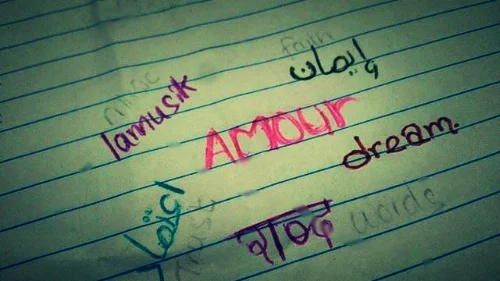 faith
إيمان
music
lamusik
AMOUR
dream.
शब्द
words